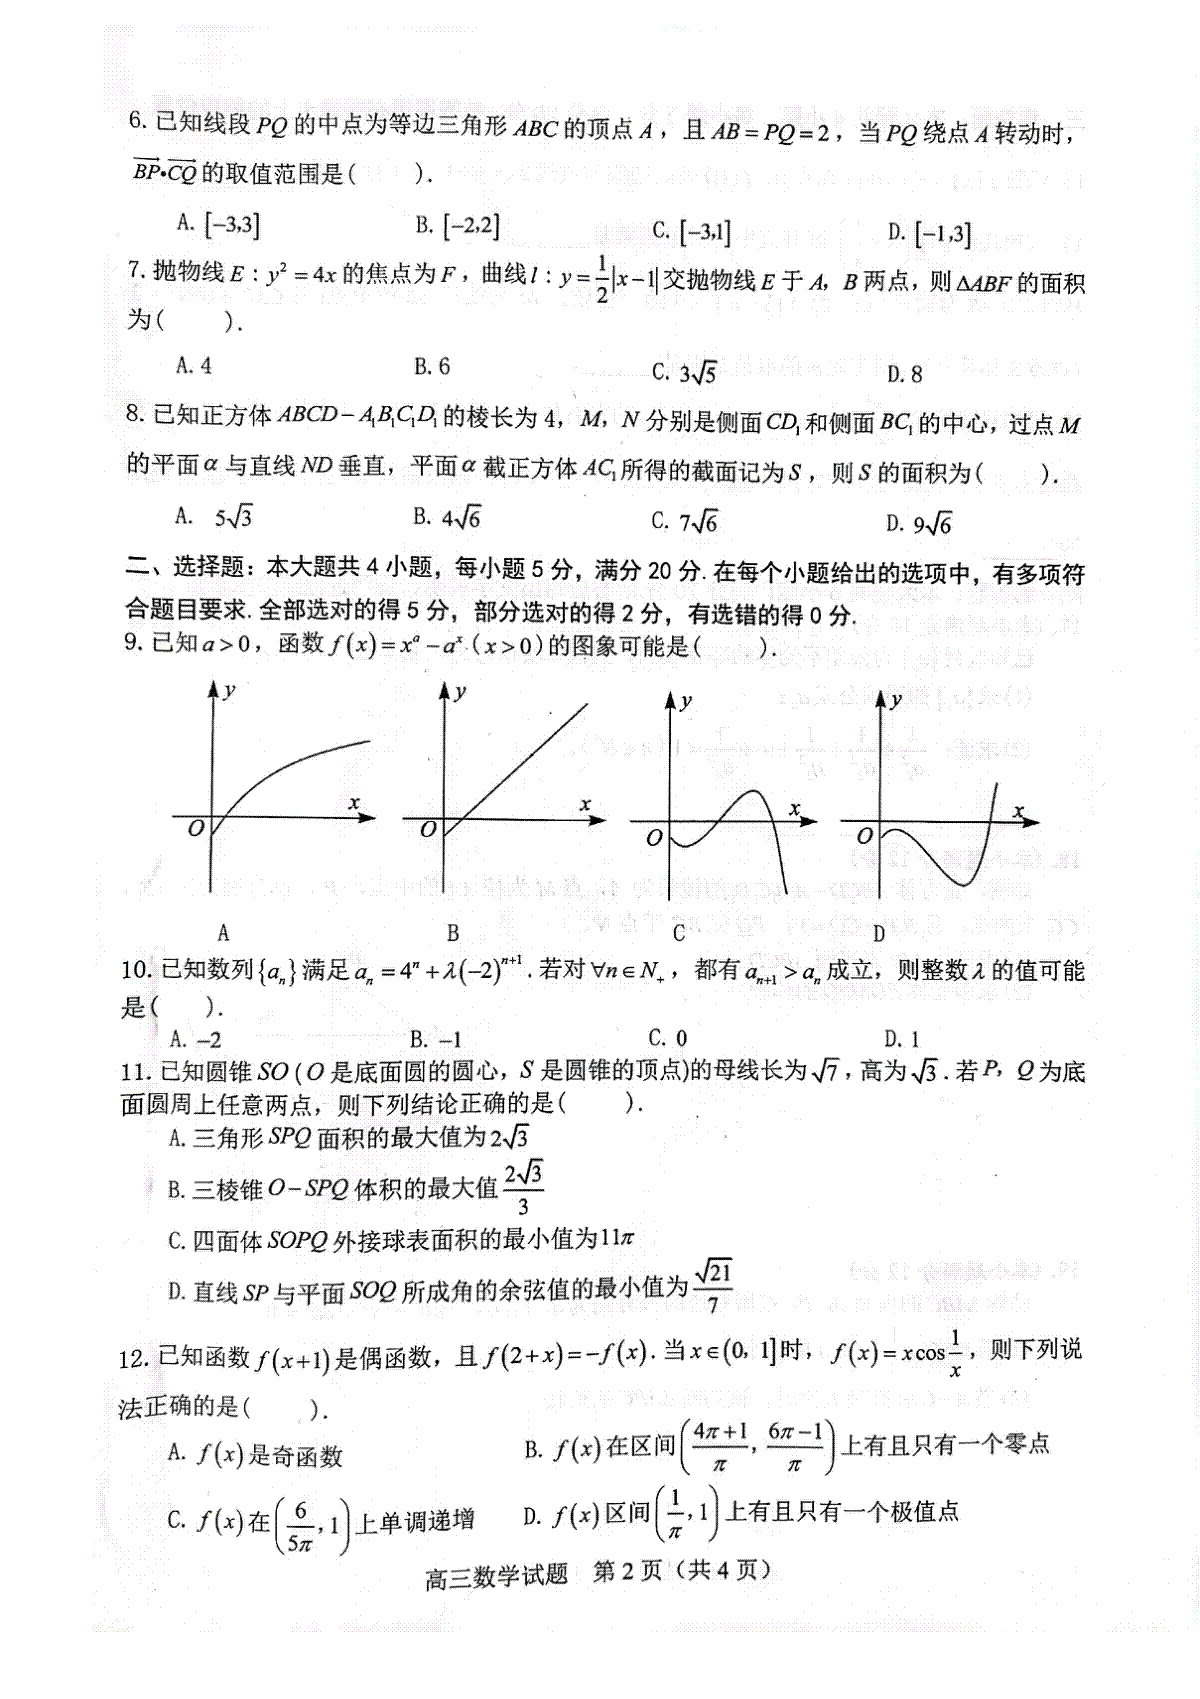 6. 已知线段 PQ 的中点为等边三角形 ABC 的顶点 A，且 AB = PQ = 2，当 PQ 绕点 A 转动时，
$\overrightarrow{BP}\cdot\overrightarrow{CQ}$ 的取值范围是(    ).
A. [-3,3]    B. [-2,2]    C. [-3,1]    D. [-1,3]
7. 抛物线 E : y² = 4x 的焦点为 F，曲线 l : y = $\frac{1}{2}$|x-1| 交抛物线 E 于 A，B 两点，则 ΔABF 的面积
为(    ).
A. 4    B. 6    C. 3√5    D. 8
8. 已知正方体 ABCD - A₁B₁C₁D₁ 的棱长为 4，M，N 分别是侧面 CD₁ 和侧面 BC₁ 的中心，过点 M
的平面 α 与直线 ND 垂直，平面 α 截正方体 AC₁ 所得的截面记为 S，则 S 的面积为(    ).
A. 5√3    B. 4√6    C. 7√6    D. 9√6
二、选择题：本大题共 4 小题，每小题 5 分，满分 20 分. 在每个小题给出的选项中，有多项符
合题目要求. 全部选对的得 5 分，部分选对的得 2 分，有选错的得 0 分.
9. 已知 a > 0，函数 f(x) = xᵃ - aˣ (x > 0) 的图象可能是(    ).
y    y    y    y
x    x    x    x
O    O    O    O
A    B    C    D
10. 已知数列 {aₙ} 满足 aₙ = 4ⁿ + λ(-2)ⁿ⁺¹. 若对 ∀n ∈ N₊，都有 aₙ₊₁ > aₙ 成立，则整数 λ 的值可能
是(    ).
A. -2    B. -1    C. 0    D. 1
11. 已知圆锥 SO ( O 是底面圆的圆心，S 是圆锥的顶点)的母线长为 √7，高为 √3. 若 P，Q 为底
面圆周上任意两点，则下列结论正确的是(    ).
A. 三角形 SPQ 面积的最大值为 2√3
B. 三棱锥 O - SPQ 体积的最大值 $\frac{2\sqrt{3}}{3}$
C. 四面体 SOPQ 外接球表面积的最小值为 11π
D. 直线 SP 与平面 SOQ 所成角的余弦值的最小值为 $\frac{\sqrt{21}}{7}$
12. 已知函数 f(x+1) 是偶函数，且 f(2+x) = -f(x). 当 x ∈ (0, 1] 时，f(x) = x cos$\frac{1}{x}$，则下列说
法正确的是(    ).
A. f(x) 是奇函数    B. f(x) 在区间 $\left(\frac{4\pi+1}{\pi}, \frac{6\pi-1}{\pi}\right)$ 上有且只有一个零点
C. f(x) 在 $\left(\frac{6}{5\pi}, 1\right)$ 上单调递增    D. f(x) 区间 $\left(\frac{1}{\pi}, 1\right)$ 上有且只有一个极值点
高三数学试题    第 2 页（共 4 页）